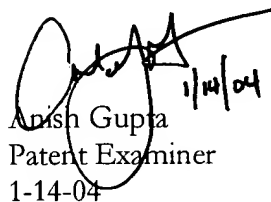 1/14/04
Anish Gupta
Patent Examiner
1-14-04